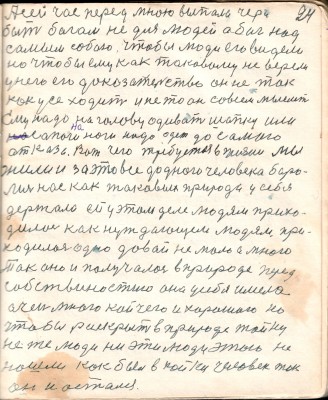 А сей час перед мною выпали чере 24
быть богом не для людей а бог над
самим собою, чтобы люди его видели
но чтобы ему как таковому не верели
у него его доказательство он не так
как усе ходит и не то он совсем мыслит
ему надо на голову одивать шапку или
на сапоги на ноги надо одет до самого
отказа. Вот чего требуется в жизни мы
жили и за это все додного человека боро
лись нас как таковых природа у себя
держала ей у этом деле людям прихо-
дилось как нуждающем людям, при-
ходилось одно довай не мало а много
так оно и получалося в природе перед
собственностию она у себя имела
очен много кой чего и хорошого но
чтобы раскрыть в природе тайну
не же люди ни эти люди этого не
нашли как был в тайни человек так
он и остался.